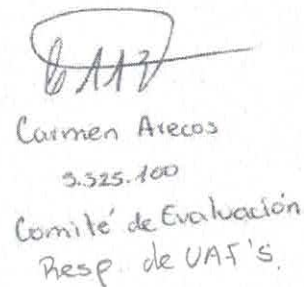 Carmen Arecos
3.325.100
Comité de Evaluación
Resp. de UAF'S.